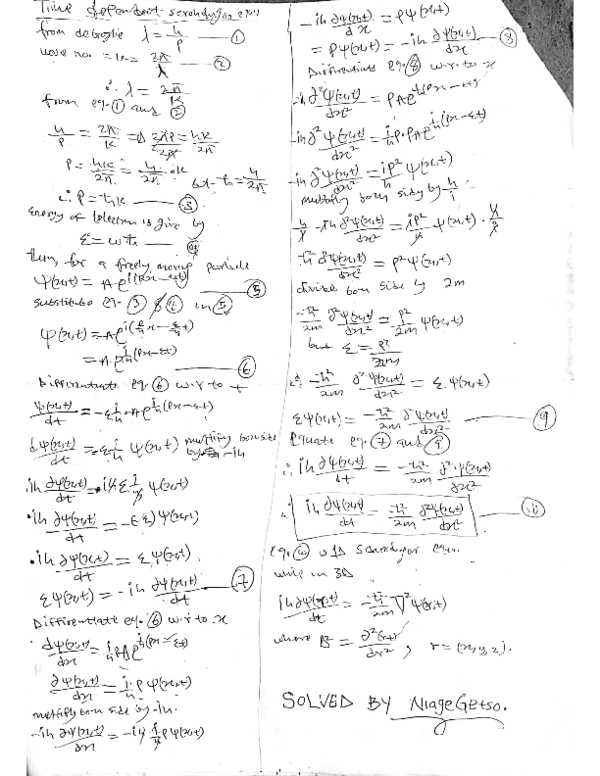 Time dependent schrodinger eqn
from debroglie λ = h/p — ①
wave no. = k = 2π/λ — ②
∴ λ = 2π/k
from eq. ① and ②
h/p = 2π/k ⇒ 2πp/2π = hk/2π
P = hk/2π = h/2π · k but ħ = h/2π
∴ P = ħk — ③
Energy of electron is give by
E = wħ — ④
then, for a freely moving particle
Ψ(x,t) = A e^i(kx - wt) — ⑤
substitute eq. ③ & ④ in ⑤
Ψ(x,t) = A e^i(p/ħ x - E/ħ t)
= A e^i/ħ(Px - Et) — ⑥
Differentiate eq. ⑥ w.r to t
∂Ψ(x,t)/dt = -E i/ħ · A e^i/ħ(Px - Et)
∂Ψ(x,t)/dt = -E i/ħ Ψ(x,t) multiply both side by -iħ
iħ ∂Ψ(x,t)/dt = -iħ E i/ħ Ψ(x,t)
iħ ∂Ψ(x,t)/dt = -(-E) Ψ(x,t)
iħ ∂Ψ(x,t)/dt = E Ψ(x,t)
E Ψ(x,t) = -iħ ∂Ψ(x,t)/dt — ⑦
Differentiate eq. ⑥ w.r to x
∂Ψ(x,t)/dx = i/ħ PA e^i/ħ(Px - Et)
∂Ψ(x,t)/dx = i/ħ P Ψ(x,t)
multiply both side by -iħ.
-iħ ∂Ψ(x,t)/dx = -iħ i/ħ P Ψ(x,t)
-iħ ∂Ψ(x,t)/dx = P Ψ(x,t)
= P Ψ(x,t) = -iħ ∂Ψ(x,t)/dx — ⑧
Differentiate eq. ⑧ w.r to x
-iħ ∂²Ψ(x,t)/dx² = P A e^i/ħ(Px - Et)
-iħ ∂²Ψ(x,t)/dx² = i/ħ P · P A e^i/ħ(Px - Et)
-iħ ∂²Ψ(x,t)/dx² = iP²/ħ Ψ(x,t)
multiply both side by ħ/i
ħ/i · -iħ ∂²Ψ(x,t)/dx² = iP²/ħ · Ψ(x,t) · ħ/i
-ħ² ∂²Ψ(x,t)/dx² = P² Ψ(x,t)
divide both side by 2m
-ħ²/2m ∂²Ψ(x,t)/dx² = P²/2m Ψ(x,t)
but E = P²/2m
∴ -ħ²/2m ∂²Ψ(x,t)/dx² = E Ψ(x,t)
E Ψ(x,t) = -ħ²/2m ∂²Ψ(x,t)/dx² — ⑨
Equate eq. ⑦ and ⑨
∴ iħ ∂Ψ(x,t)/dt = -ħ²/2m ∂²Ψ(x,t)/∂x²
∴ iħ ∂Ψ(x,t)/dt = -ħ²/2m ∂²Ψ(x,t)/dx² — ⑩
eq. ⑩ is 1D schrodinger eqn.
while in 3D
iħ ∂Ψ(r,t)/dt = -ħ²/2m ∇² Ψ(r,t)
where ∇² = ∂²(r,t)/dr², r = (x,y,z).
SOLVED BY NiageGetso.